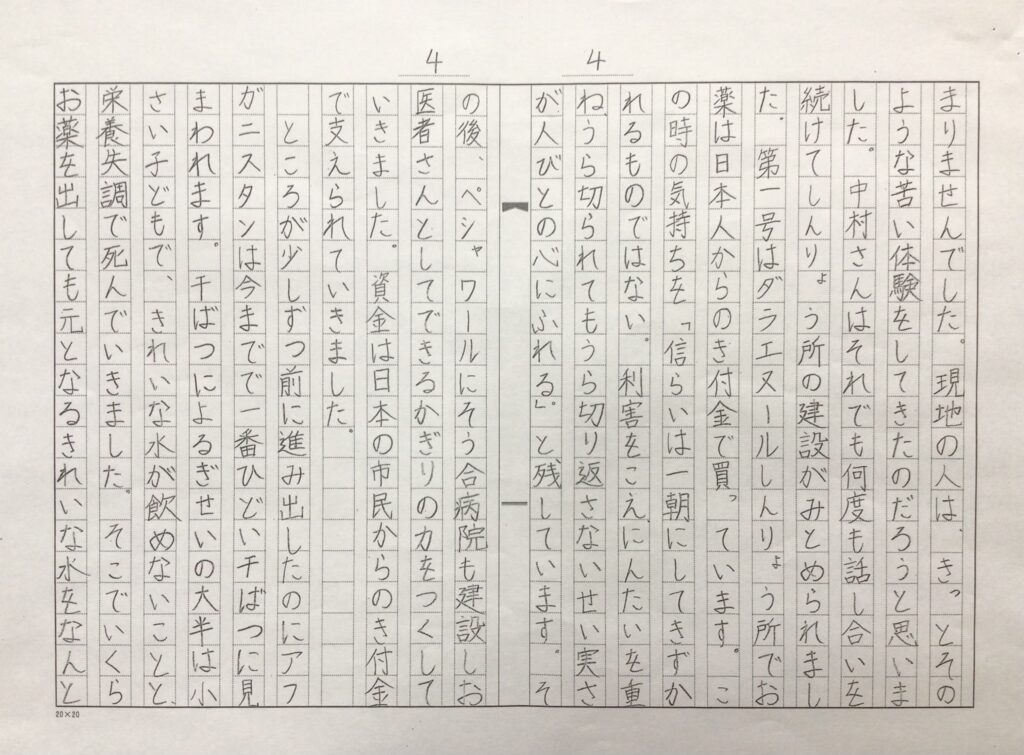 4
4
まりませんでした。現地の人は、きっとその
ような苦い体験をしてきたのだろうと思いま
した。中村さんはそれでも何度も話し合いを
続けてしんりょう所の建設がみとめられまし
た。第一号はダラエヌールしんりょう所でお
薬は日本人からのき付金で買っています。こ
の時の気持ちを「信らいは一朝にしてきずか
れるものではない。利害をこえ、にんたいを重
ね、うら切られてもうら切り返さないせい実さ
が人びとの心にふれる」。と残しています。そ
の後、ペシャワールにそう合病院も建設しお
医者さんとしてできるかぎりの力をつくして
いきました。資金は日本の市民からのき付金
で支えられていきました。
ところが少しずつ前に進み出したのにアフ
がニスタンは今までで一番ひどい干ばつに見
まわれます。干ばつによるぎせいの大半は小
さい子どもで、きれいな水が飲めないことと、
栄養失調で死んでいきました。そこでいくら
お薬を出しても元となるきれいな水をなんと
20×20